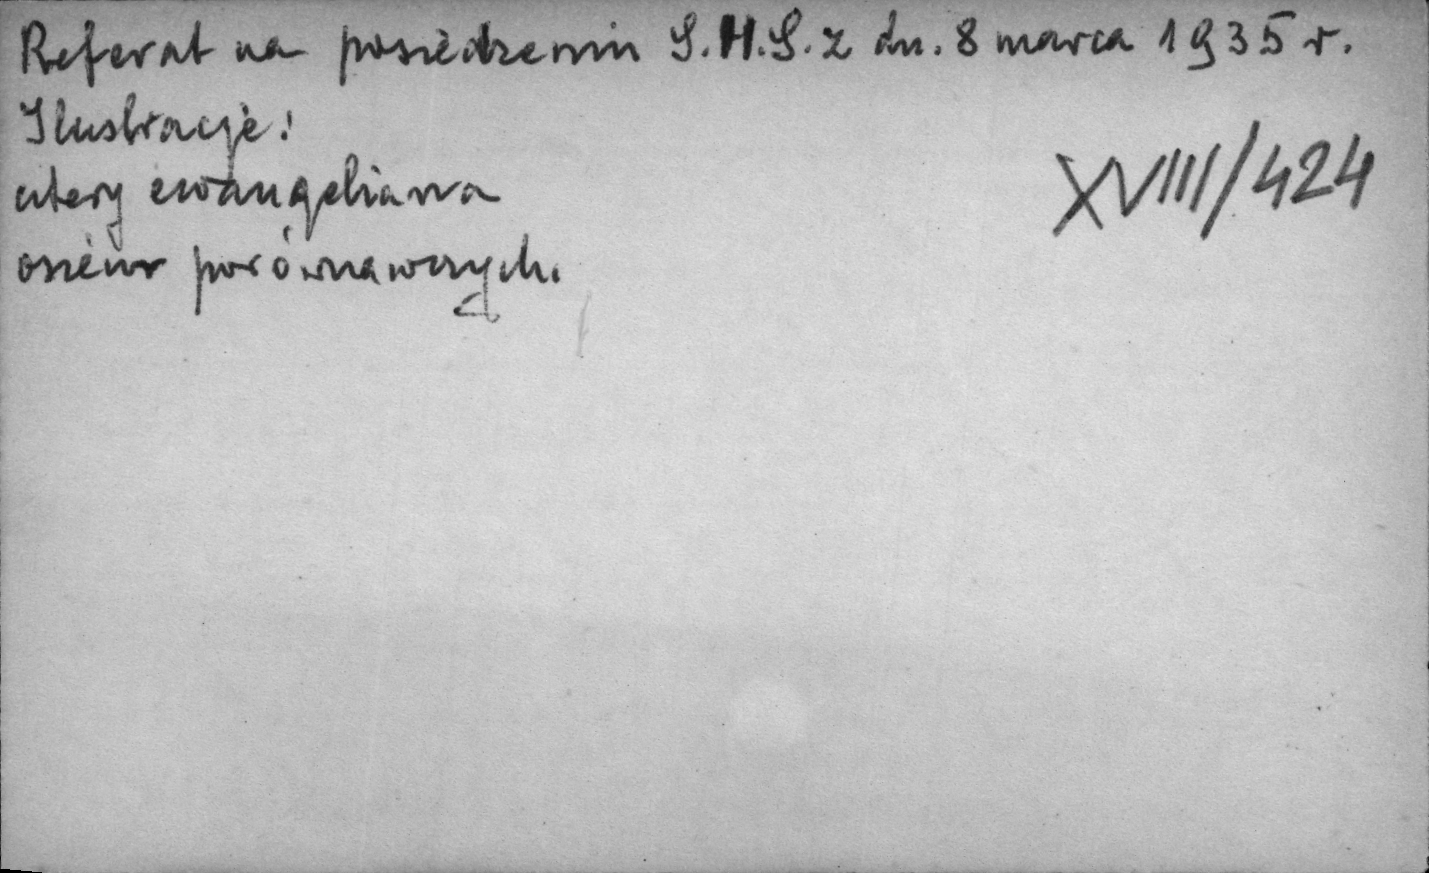 Referat na posiedzeniu S.H.S. z dn. 8 marca 1935 r.
Ilustracje:
cztery ewangeliarza
XVIII/424
osiem porównawczych.